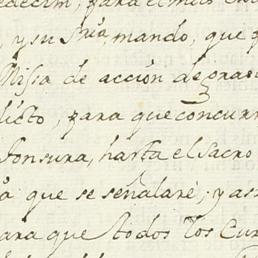 edecim, para el mis
, y su Sria, mando, que
Missa de acción de gra
dicto, para que concurr
Tonsura, hasta el Sacro
que se señalare; y as
ara que todos los Cur